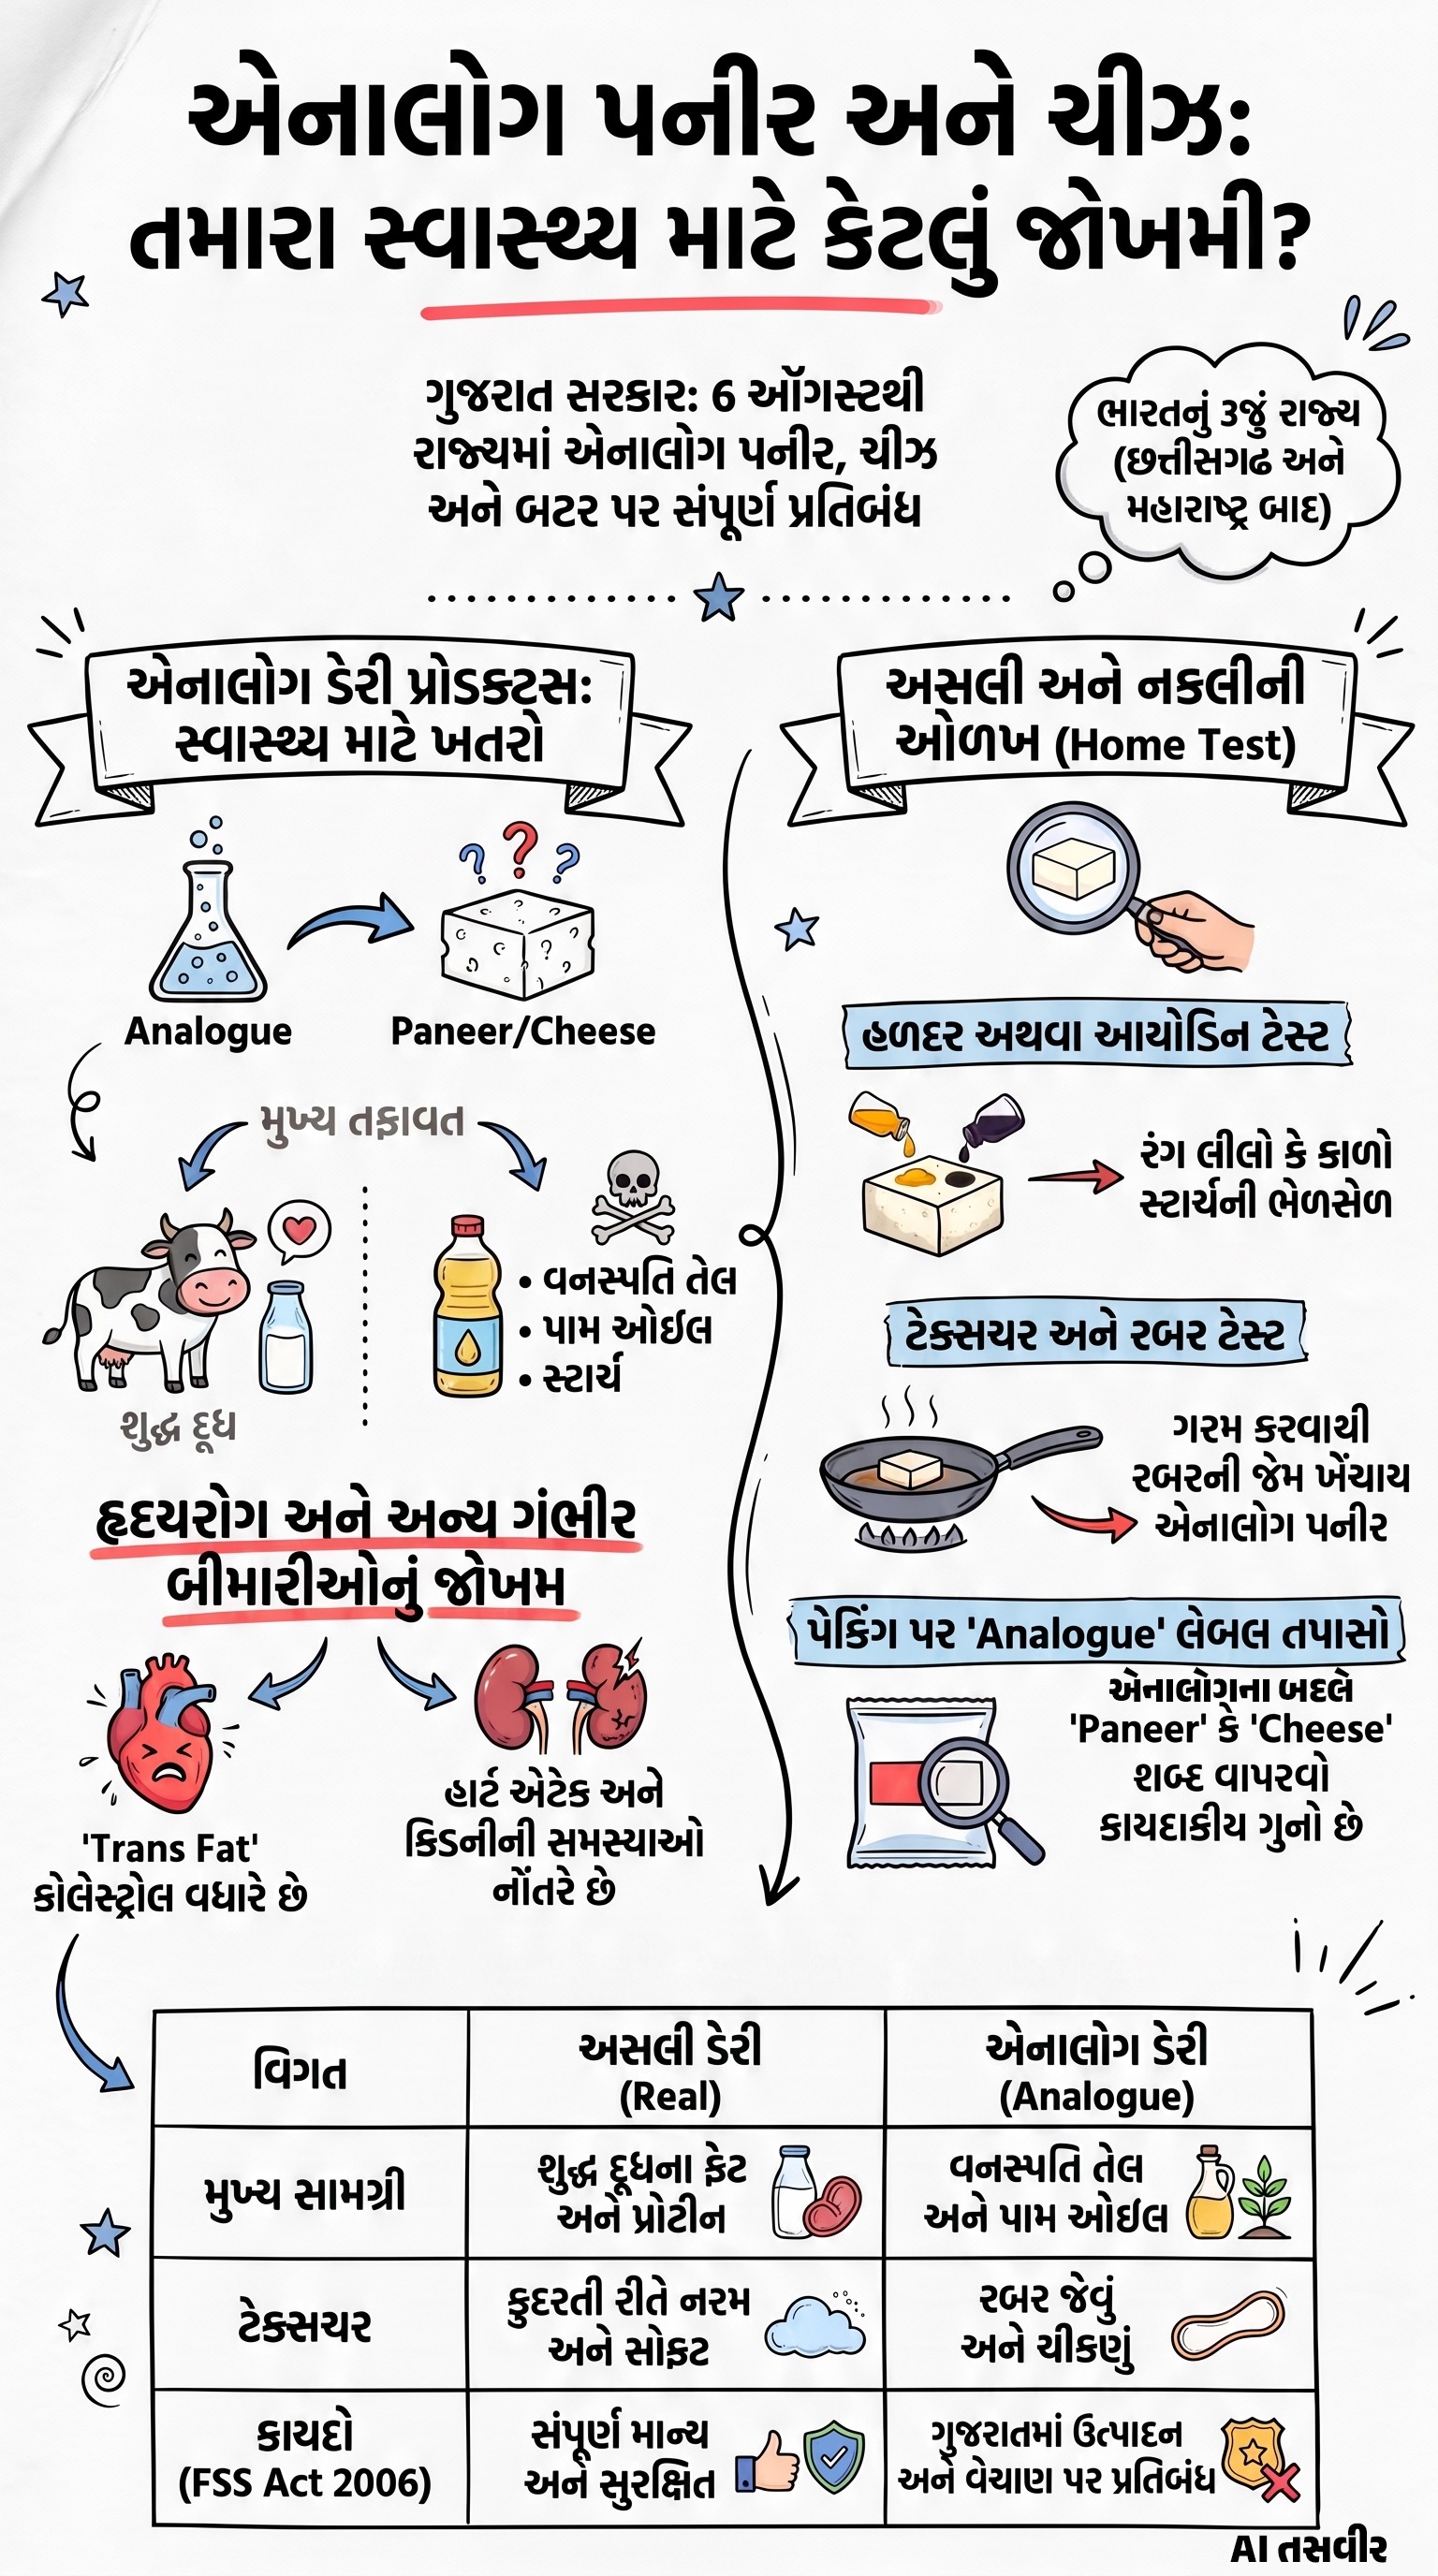 એનાલોગ પનીર અને ચીઝ:
તમારા સ્વાસ્થ્ય માટે કેટલું જોખમી?
ગુજરાત સરકાર: 6 ઑગસ્ટથી
રાજ્યમાં એનાલોગ પનીર, ચીઝ
અને બટર પર સંપૂર્ણ પ્રતિબંધ
ભારતનું ૩જું રાજ્ય
(છત્તીસગઢ અને
મહારાષ્ટ્ર બાદ)
એનાલોગ ડેરી પ્રોડક્ટ્સ:
સ્વાસ્થ્ય માટે ખતરો
Analogue
Paneer/Cheese
મુખ્ય તફાવત
શુદ્ધ દૂધ
• વનસ્પતિ તેલ
• પામ ઓઈલ
• સ્ટાર્ચ
હૃદયરોગ અને અન્ય ગંભીર
બીમારીઓનું જોખમ
'Trans Fat'
કોલેસ્ટ્રોલ વધારે છે
હાર્ટ એટેક અને
કિડનીની સમસ્યાઓ
નોંતરે છે
અસલી અને નકલીની
ઓળખ (Home Test)
હળદર અથવા આયોડિન ટેસ્ટ
રંગ લીલો કે કાળો
સ્ટાર્ચની ભેળસેળ
ટેક્સચર અને રબર ટેસ્ટ
ગરમ કરવાથી
રબરની જેમ ખેંચાય
એનાલોગ પનીર
પેકિંગ પર 'Analogue' લેબલ તપાસો
એનાલોગના બદલે
'Paneer' કે 'Cheese'
શબ્દ વાપરવો
કાયદાકીય ગુનો છે
વિગત
અસલી ડેરી
(Real)
એનાલોગ ડેરી
(Analogue)
મુખ્ય સામગ્રી
શુદ્ધ દૂધના ફેટ
અને પ્રોટીન
વનસ્પતિ તેલ
અને પામ ઓઈલ
ટેક્સચર
કુદરતી રીતે નરમ
અને સોફ્ટ
રબર જેવું
અને ચીકણું
કાયદો
(FSS Act 2006)
સંપૂર્ણ માન્ય
અને સુરક્ષિત
ગુજરાતમાં ઉત્પાદન
અને વેચાણ પર પ્રતિબંધ
AI તસવીર